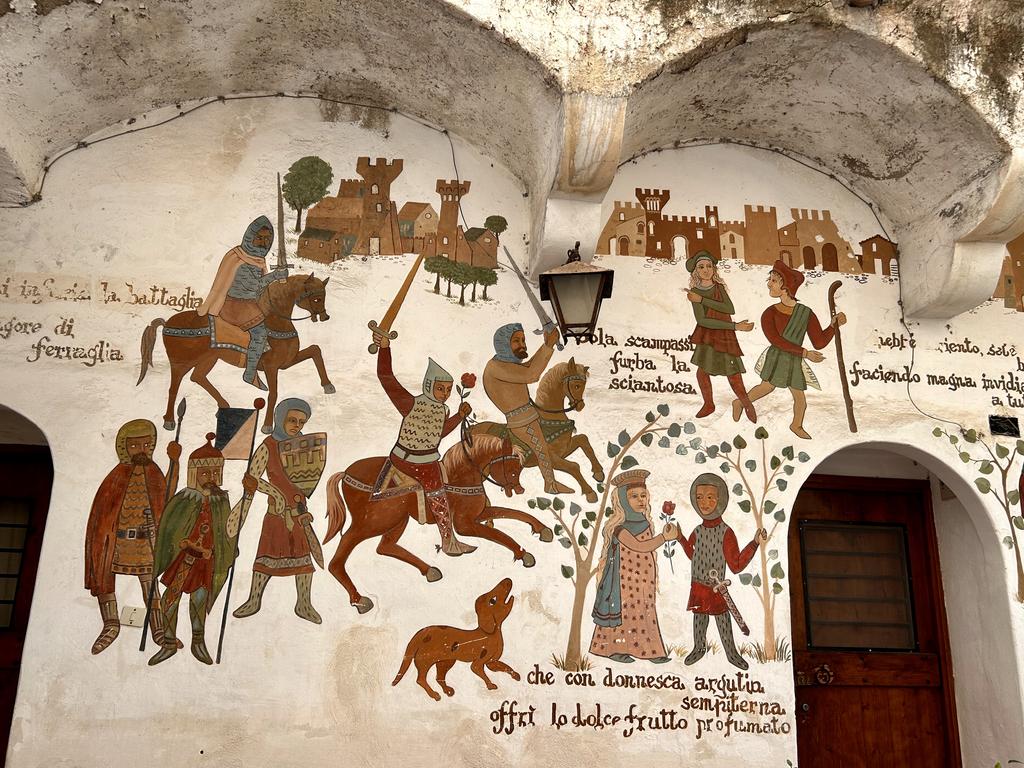 la battaglia
agore di
ferraglia
ola scampassi
furba la
sciantosa
vento, set
faciendo magna invidi
a tu
che con donnesca argutia
sempiterna
offrì lo dolce frutto profumato